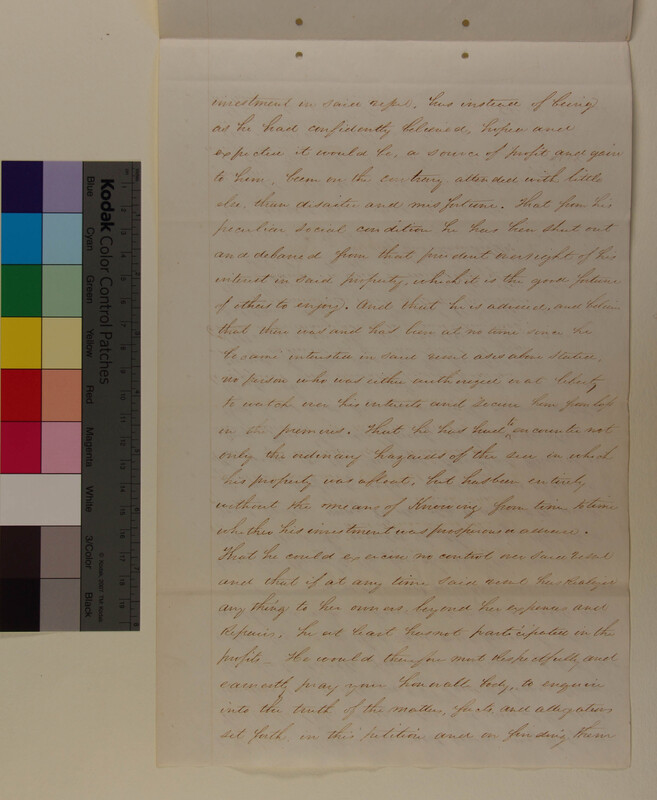 investment in said vessel. has instead of being
as he had confidently believed, hoped and
expected it would be, a source of profit and gain
to him, been on the contrary attended with little
else than disaster and misfortune. That from his
peculiar social condition he has been shut out
and debarred from that prudent oversight of his
interest in said property, which it is the good fortune
of others to enjoy. And that he is advised, and believes
that there was and has been at no time since he
became interested in said vessel as is above stated,
no person who was either authorized or at liberty
to watch over his interests and secure him from loss
in the premises. That he has had to encounter not
only the ordinary hazards of the sea in which
his property was afloat, but has been entirely
without the means of Knowing from time to time
whether his investment was prosperous or adverse.
That he could exercise no control over said vessel
and that if at any time said vessel has realized
any thing to her owners, beyond her expences and
Repairs, he at least has not participated in the
profits. He would therefore most Respectfully and
earnestly pray your honorable body, to enquire
into the truth of the matters, facts and allegations
set forth in this petition and on finding them
Kodak Color Control Patches
Blue
Cyan
Green
Yellow
Red
Magenta
White
3/Color
Black
© Kodak, 2007 TM: Kodak